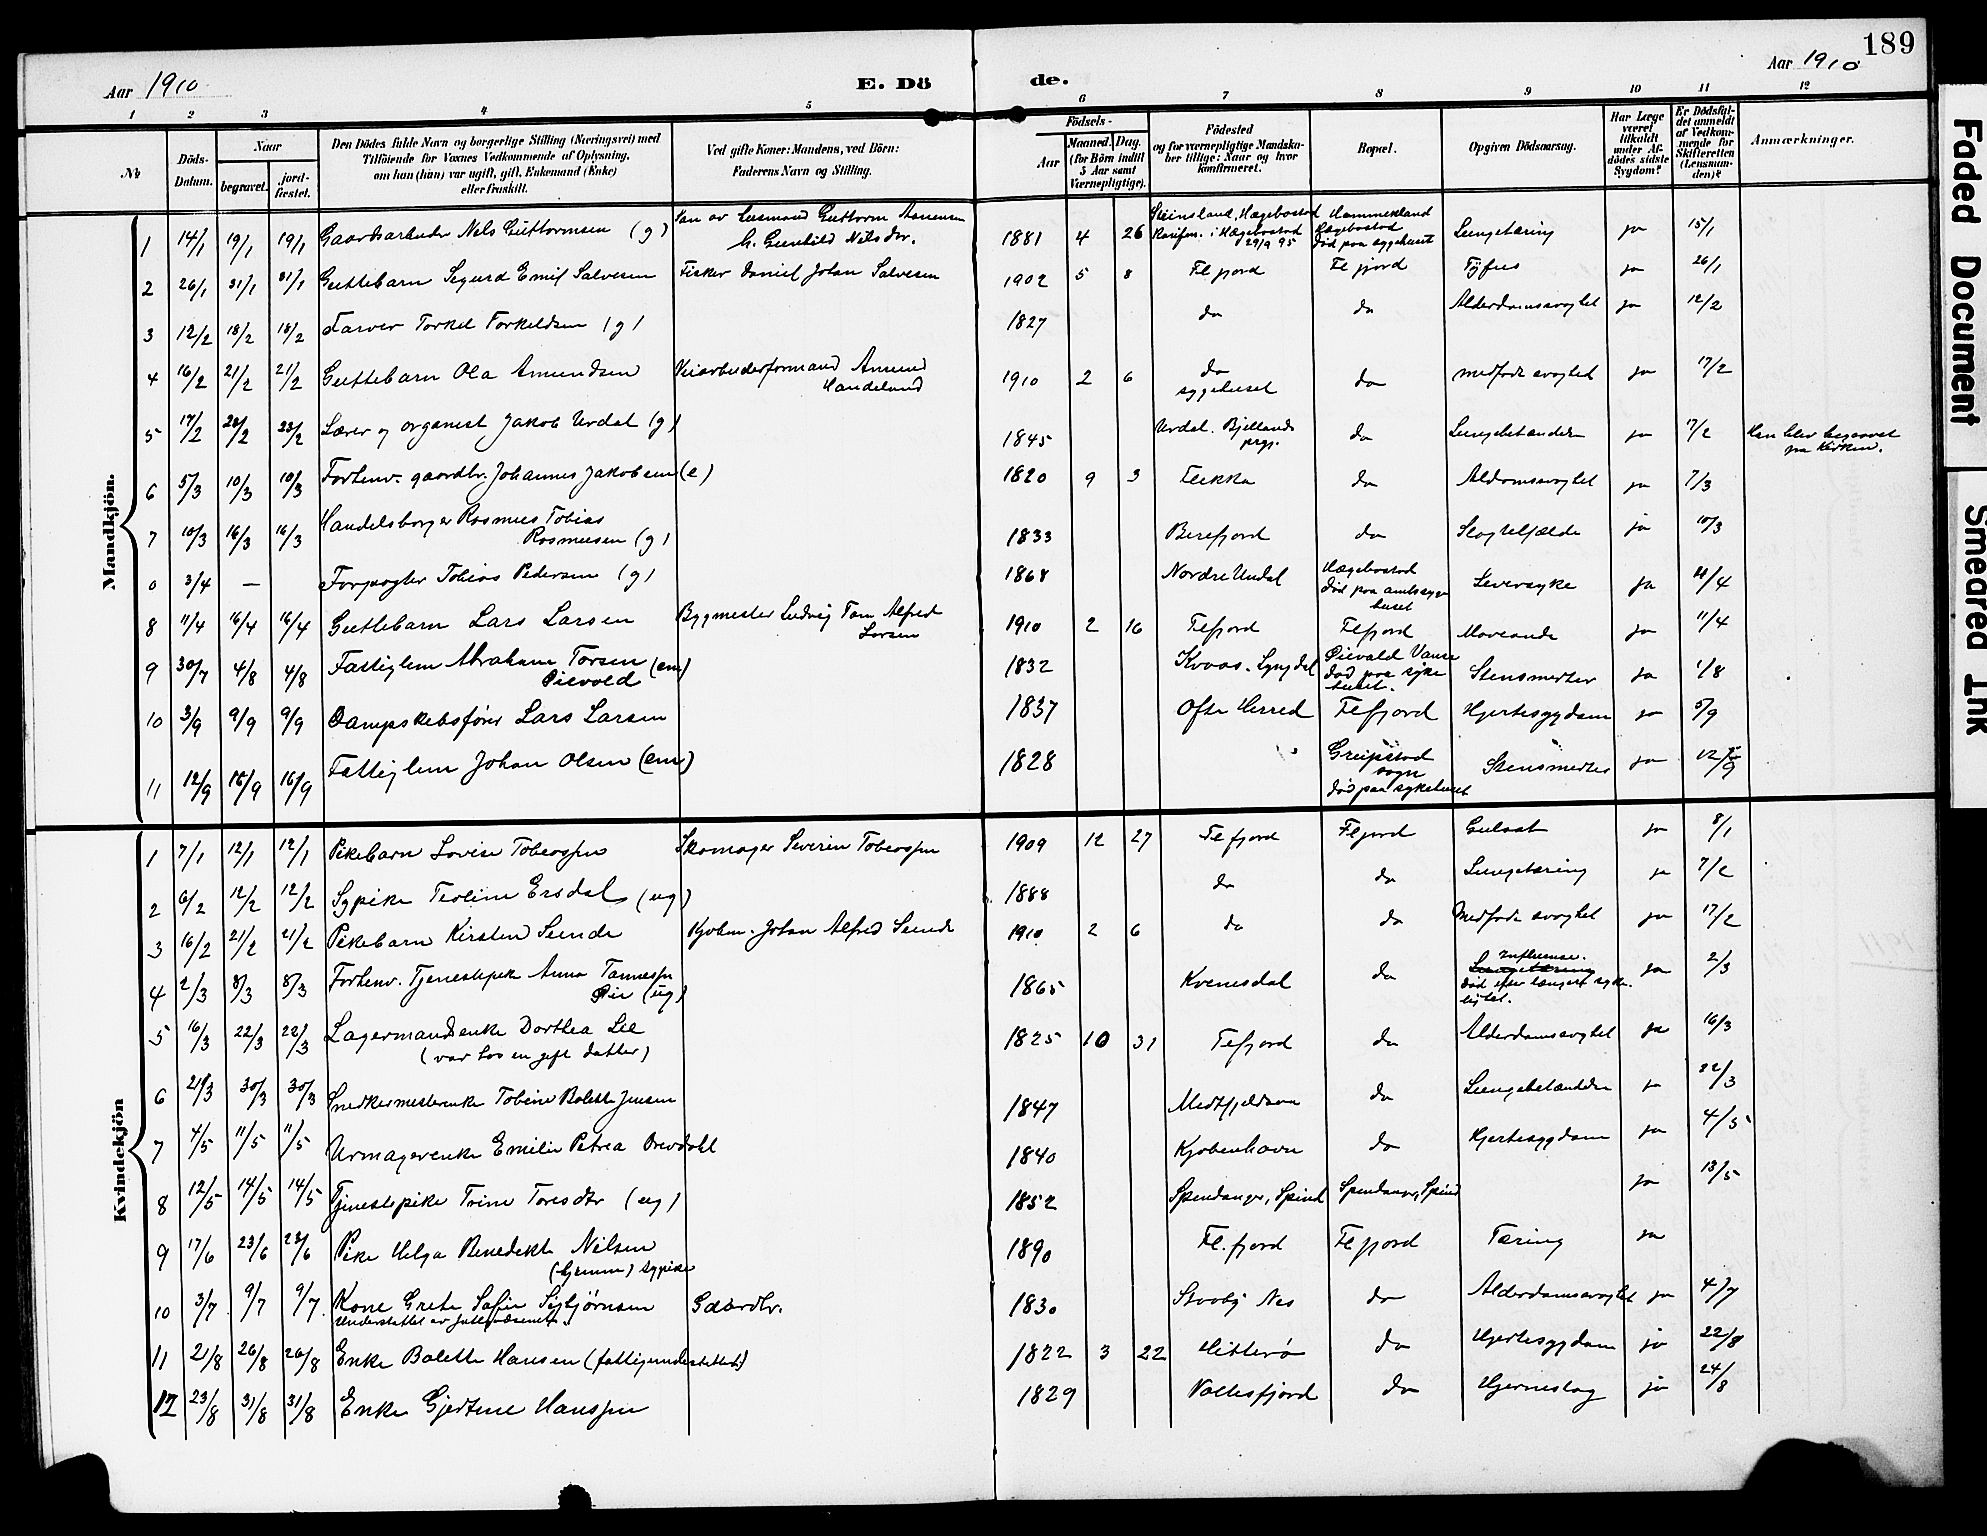 189
Aar 1910
E. Dö
de.
Aar 1910
1 2 3 4 5 6 7 8 9 10 11 12
No
Döds-Datum.
Naar
begravet.
jord-fæstet.
Den Dödes fulde Navn og borgerlige Stilling (Næringsvei) med
Tilföiende for Voxnes Vedkommende af Oplysning,
om han (hun) var ugift, gift, Enkemand (Enke)
eller fraskilt.
Ved gifte Koner: Mandens, ved Börn:
Faderens Navn og Stilling.
Födsels-
Aar
Maaned. Dag.
(for Börn indtil
5 Aar samt
Værnepligtige).
Födested
og for værnepligtige Mandska-
ber tillige: Naar og hvor
konfirmeret.
Bopæl.
Opgiven Dödsaarsag.
Har Læge
været
tilkaldt
under Af-
dödes sidste
Sygdom?
Er Dödsfal-
det anmeldt
af Vedkom-
mende for
Skifteretten
(Lensman-
den)?
Anmærkninger.
Mandkjön.
1 14/1 19/1 19/1 Gaardsarbeider Nels Guttormsen (g) Søn av Guttorm Aanensen G. Gunhild Nilsdr. 1881 4 26 Steinsland, Hægebostad Konfirm. i Hægebostad 29/9 95 Hammekland Hægebostad død paa sygehuset Lungetæring ja 15/1
2 26/1 31/1 31/1 Guttebarn Sigurd Emil Salvesen Fisker Daniel Johan Salvesen 1902 5 8 Flfjord Flfjord Tyfus ja 26/1
3 12/2 18/2 18/2 Farver Torkel Torkeldsen (g) 1827 do do Alderdomssvaghet ja 12/2
4 16/2 21/2 21/2 Guttebarn Ola Amundsen Veiarbeiderformand Amund Handeland 1910 2 6 do sygehuset do medfødt svaghet ja 17/2
5 17/2 23/2 23/2 Lærer og organist Jakob Urdal (g) 1845 Urdal. Bjellands prgj. do Lungebetændelse ja 17/2 Han blev begravet fra Kirken.
6 5/3 10/3 10/3 Forhenv. gaardbr. Johannes Jakobsen (e) 1820 9 3 Flikka do Aldomssvaghet ja 7/3
7 10/3 16/3 16/3 Handelsborger Rasmus Tobias Rasmussen (g) 1833 Berefjord do Slagtilfælde ja 10/3
0 3/4 — Forpagter Tobias Pedersen (g) 1868 Nordre Undal Hægebostad død paa amtssygehuset Leversyke ja 4/4
8 11/4 16/4 16/4 Guttebarn Lars Larsen Bygmester Ludvig Tom Alfred Larsen 1910 2 16 Flfjord Flfjord Maveonde ja 11/4
9 30/7 4/8 4/8 Fattiglem Abraham Torsen Øievold (em) 1832 Kvaas. Lyngdal Øievald Vanse død paa sykehuset. Stensmerter ja 1/8
10 3/9 9/9 9/9 Dampskibsfører Lars Larsen 1837 Ofte Herred Flfjord Hjertesygdom ja 5/9
11 12/9 16/9 16/9 Fattiglem Johan Olsen (em) 1828 Greipstad sogn død paa sykehuset Stensmerter ja 12/9
Kvindekjön
1 7/1 12/1 12/1 Pikebarn Lovise Tobiassen Skomager Severin Tobiassen 1909 12 27 Flfjord Flfjord Gulsot ja 8/1
2 6/2 12/2 12/2 Sypike Teoline Ersdal (ug) 1888 do do Lungetæring ja 7/2
3 16/2 21/2 21/2 Pikebarn Kirsten Sunde Kjøbm. Johan Alfred Sunde 1910 2 6 do do Medfødt svaghet ja 17/2
4 2/3 8/3 8/3 Forhenv. Tjenestepike Anna Tønnessen Øie (ug) 1865 Kvinesdal do Influensa. Lungetæring død efter længere sykeligtet. ja 2/3
5 16/3 22/3 22/3 Lagermandsenke Dorthea Lie (var hos en gift datter) 1825 10 31 Flfjord do Alderdomssvaghet ja 16/3
6 21/3 30/3 30/3 Snedkermesterenke Tobine Bolette Jensen 1847 do Lungebetændelse ja 22/3
7 4/5 11/5 11/5 Urmagerenke Emilie Petrea Drevdahl 1840 Kjøbenhavn do Hjertesygdom ja 4/5
8 12/5 14/5 14/5 Tjenestepike Trine Toresdtr (ug) 1852 Spendanger, Spind Spendanger, Spind ja 13/5
9 17/6 23/6 23/6 Pike Helga Benedikte Nilsen (hjemme) sypike 1890 Fl.fjord Flfjord Tæring ja
10 3/7 9/7 9/7 Kone Grete Sofie Sigbjørnsen Understøttet av fattigvæsenet. Gaardbr. 1830 Nes do Alderdomssvaghet ja 4/7
11 21/8 26/8 26/8 Enke Bolette Hansen (fattigunderstøttet) 1822 3 22 Hitterø do Hjertesygdom ja 22/8
12 23/8 31/8 31/8 Enke Gjertine Hanssen 1829 do Hjerneslag ja 24/8
Faded Document
Smeared Ink